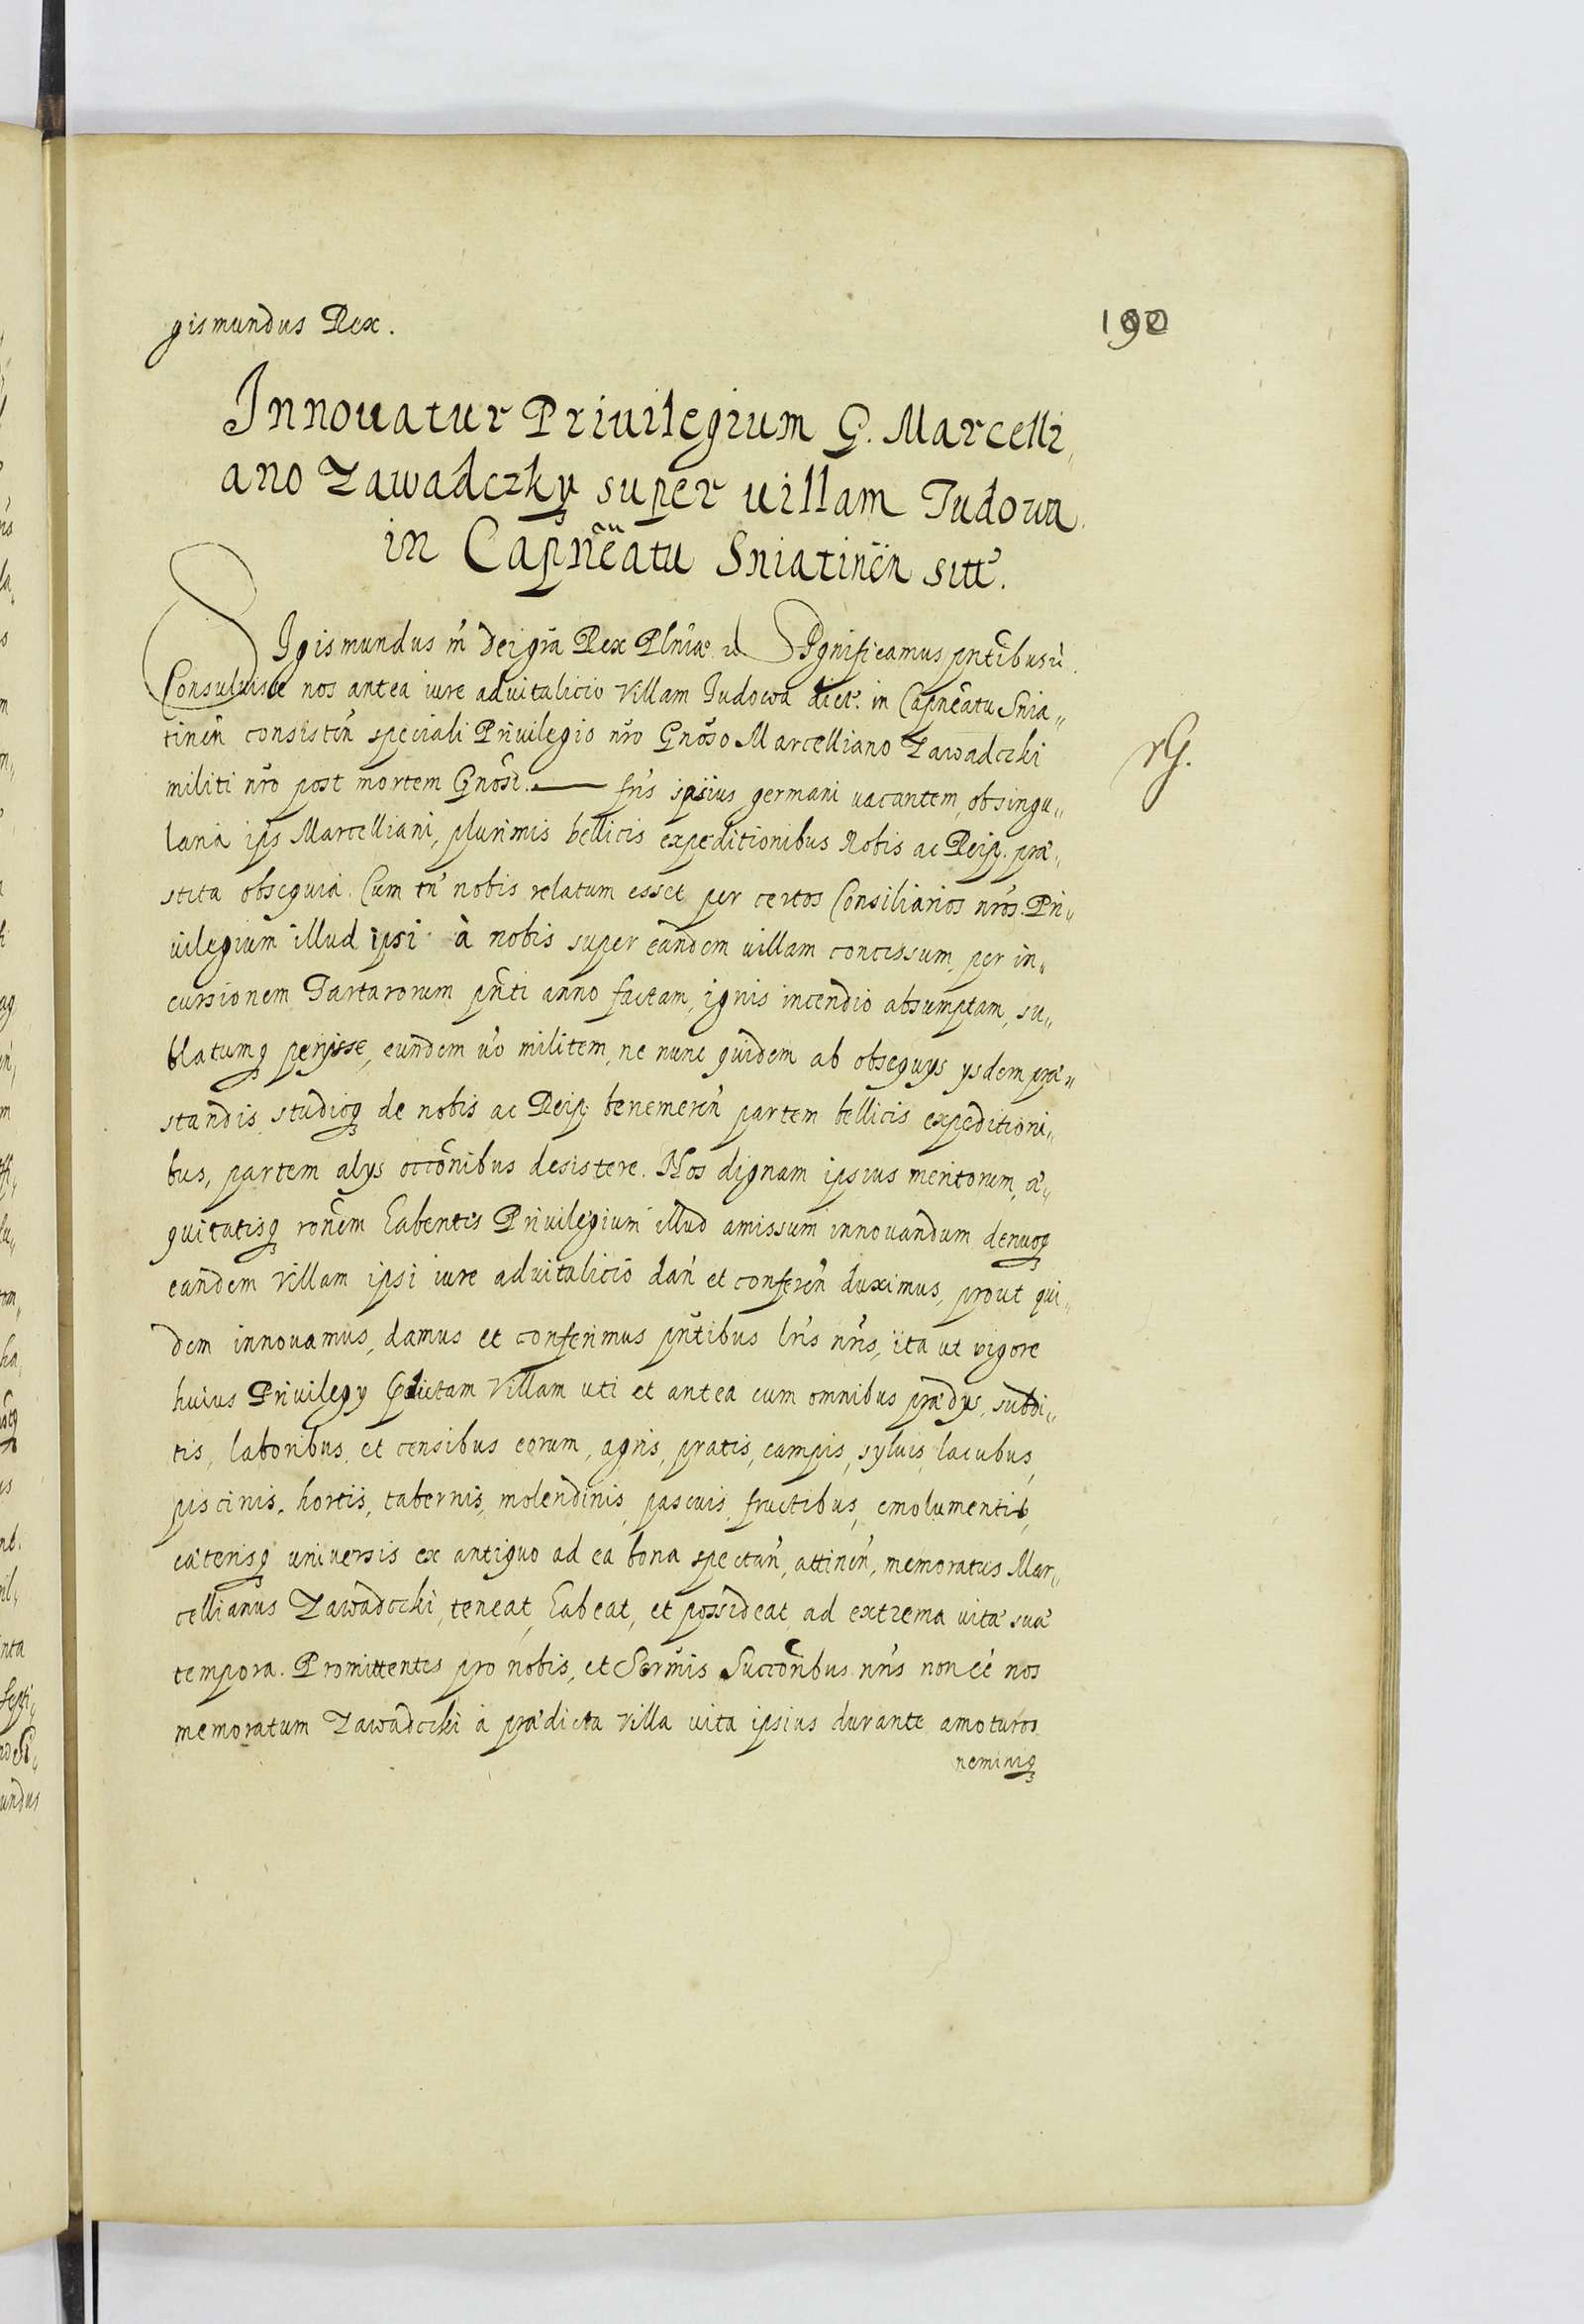 gismundus Rex.
190
Innouatur Priuilegium G. Marcelli,
ano Zawadczky super uillam Tudowa
in Capnẽatu Sniatinẽn sitt.
SIgismundus III Dei grã Rex Plniæ Significamus pntibus
Consuluisse nos antea iure aduitalicio villam Tudowa dict. in Capneãtu Snia„
tinẽn consistẽn speciali Priuilegio nro Gnoso Marcelliano Zawadczki
rG.
militi nro post mortem Gnosi. — fris ipsius germani uacantem, ob singu„
laria ips Marcelliani, plurimis bellicis expeditionibus Nobis ac Reip. præ„
stita obsequia. Cum tñ nobis relatum esset per certos Consiliarios nros. Pri„
uilegium illud ipsi à nobis super eandem uillam concessum, per in„
cursionem Tartarorum pñti anno factam, ignis incendio absumptam, su„
blatumq perijsse, eundem uo militem, ne nunc quidem ab obsequys ysdem præ„
standis, studioq de nobis ac Reip benemerẽn partem bellicis expeditioni„
bus, partem alys occõnibus desistere. Nos dignam ipsius meritorum, æ„
quitatisq ronẽm habentes Priuilegium illud amissum innouandum denuoq
eandem villam ipsi iure aduitalicio dañ et conferẽn duximus, prout qui„
dem innouamus, damus et conferimus pñtibus lris nris, ita ut vigore
huius Priuilegy pdictam villam uti et antea cum omnibus prædys, subdi„
tis, laboribus, et censibus eorum, agris, pratis, campis, syluis, lacubus,
piscinis, hortis, tabernis, molendinis, pascuis, fructibus, emolumentis,
cæterisq uniuersis ex antiquo ad ea bona spectañ, attinẽn, memoratus Mar„
cellianus Zawadczki, teneat, habeat, et possideat ad extrema vitæ suæ
tempora. Promittentes pro nobis, et Sermis Succõribus nris non eé nos
memoratum Zawadczki à prædicta villa uita ipsius durante amoturos
neminiq